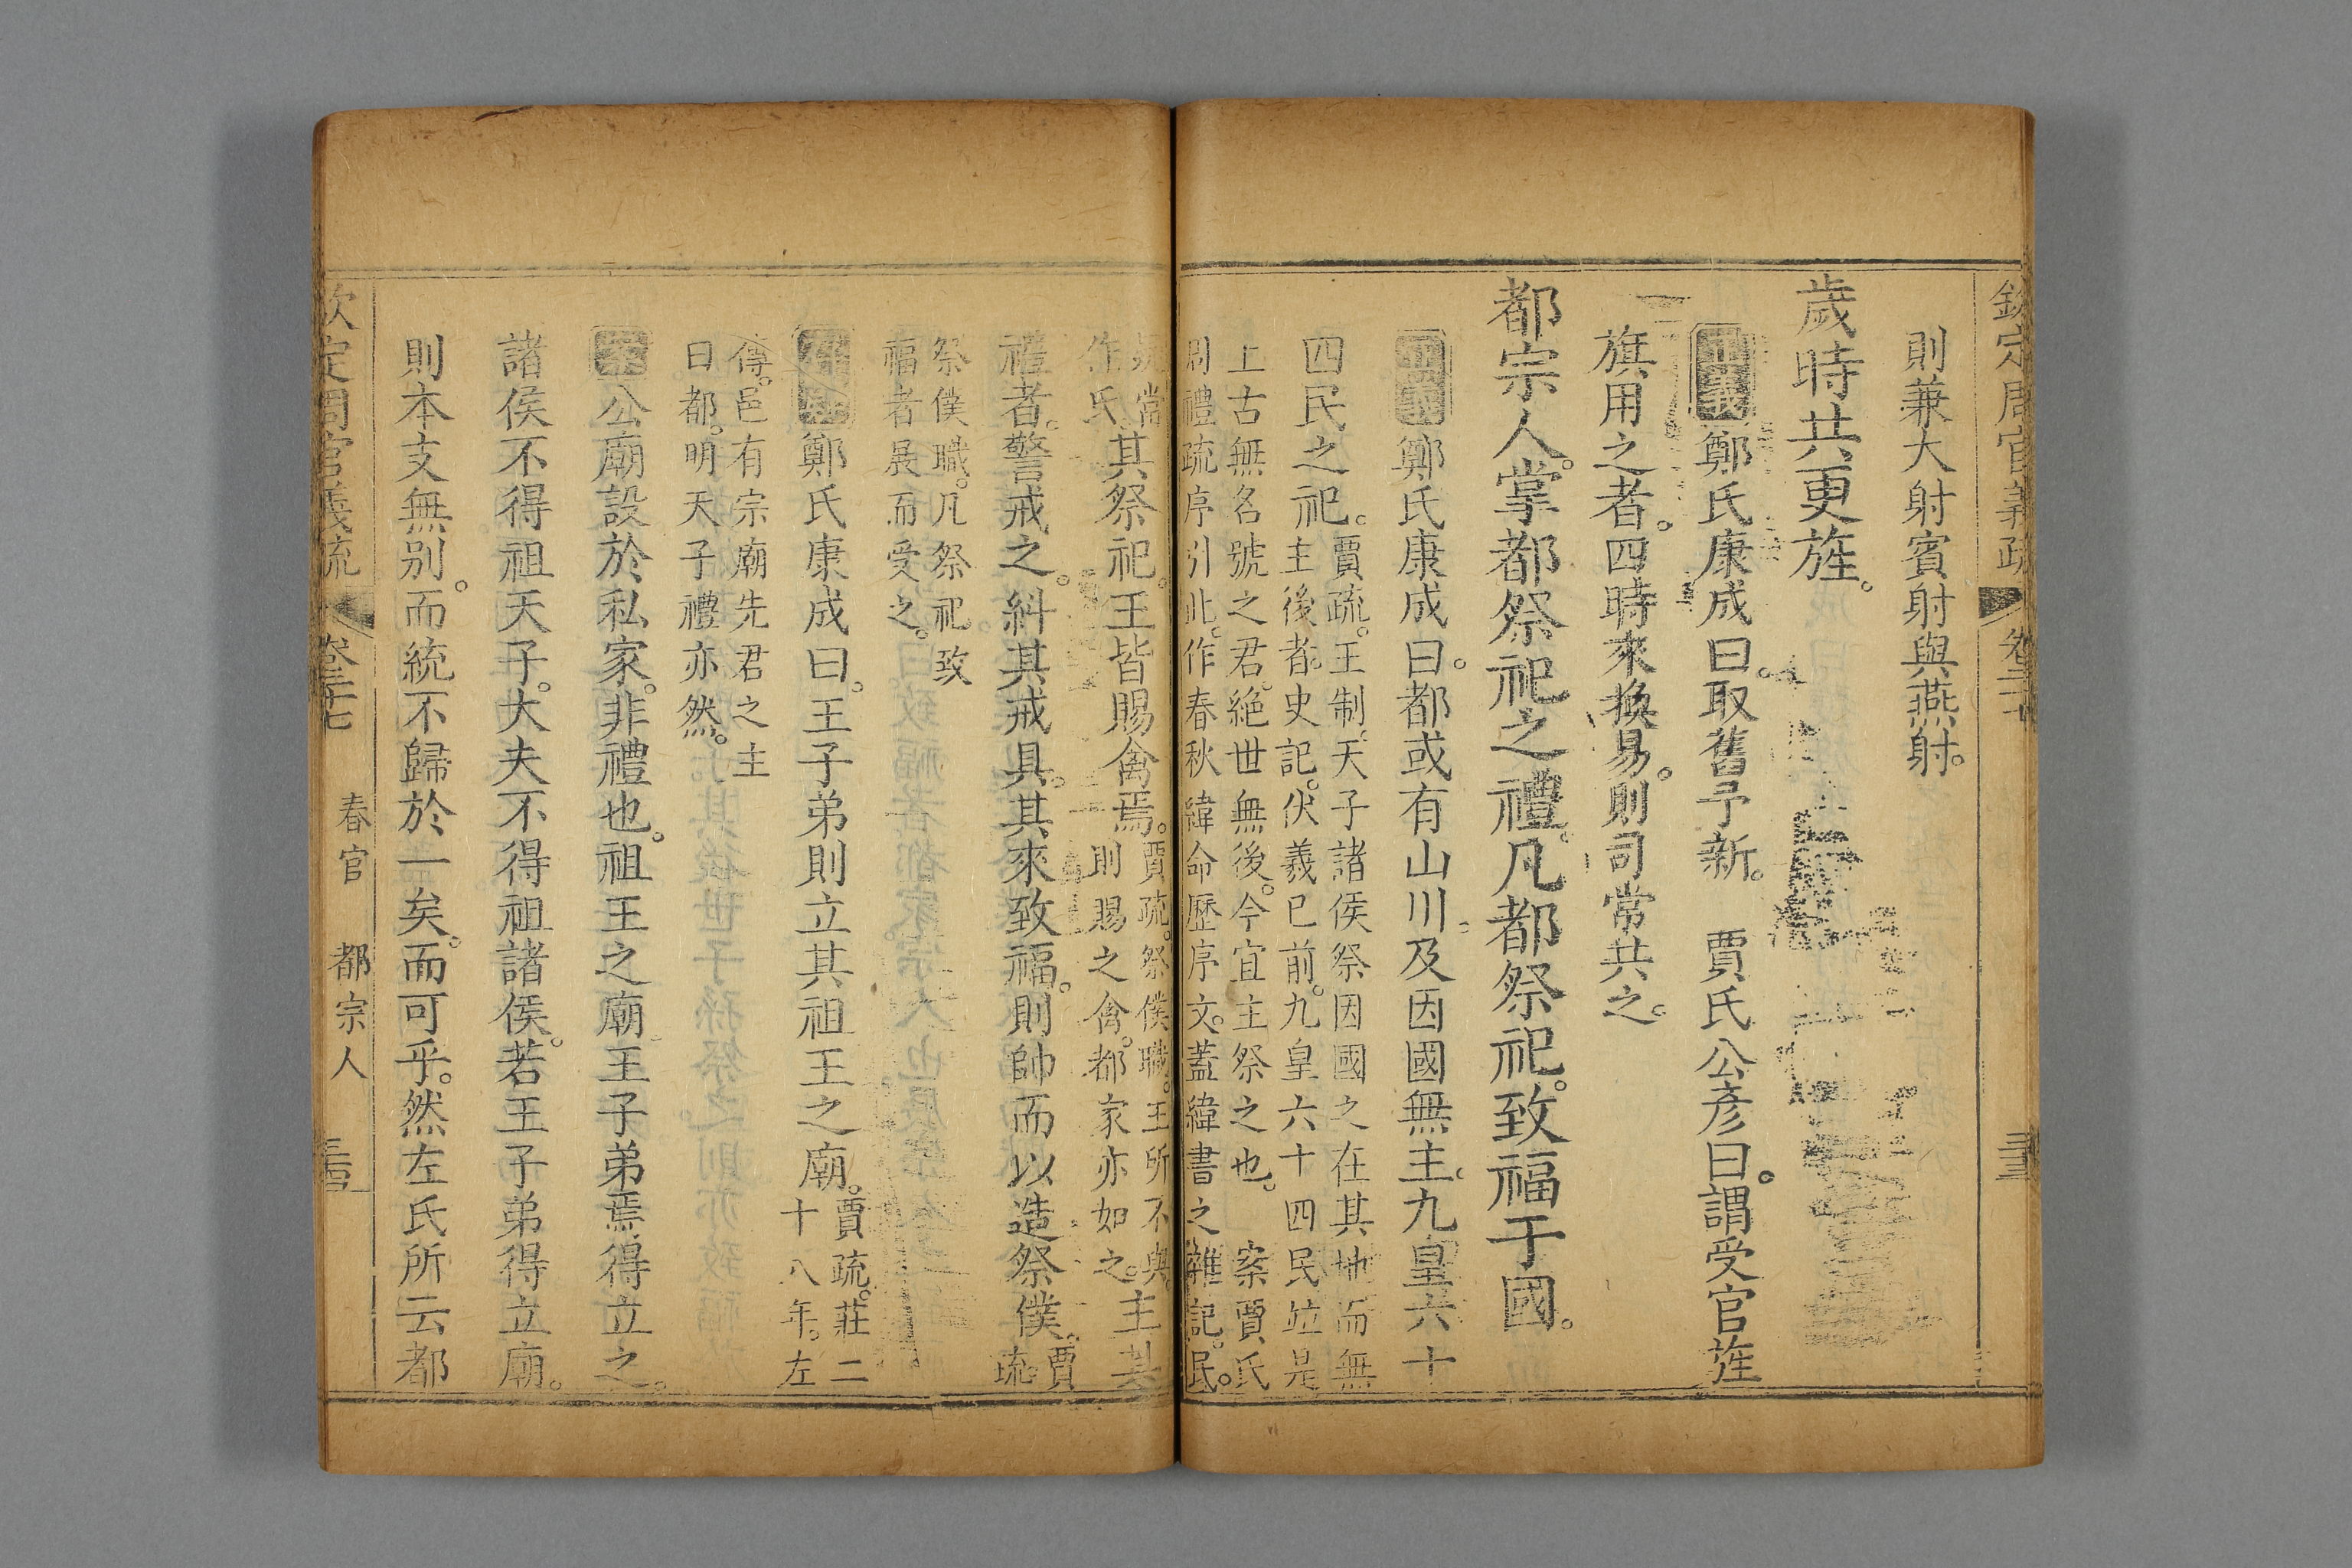 欽定周官義疏 卷二十七
則兼大射賓射與燕射。
歲時共更旌。
正義 鄭氏康成曰。取舊予新。 賈氏公彥曰。謂受官旌
旗用之者。四時來換易。則司常共之。
都宗人。掌都祭祀之禮。凡都祭祀。致福于國。
正義 鄭氏康成曰。都或有山川。及因國無主。九皇六十
四民之祀。
賈疏。王制。天子諸侯祭因國之在其地而無
主後者。史記。伏羲已前。九皇六十四民竝是
上古無名號之君。絕世無後。今宜主祭之也。 案賈氏
周禮疏序引此。作春秋緯命歷序文。蓋緯書之雜記。民。
常
作氏。
其祭祀。王皆賜禽焉。
賈疏。祭僕職。王所不與。
則賜之禽。都家亦如之。
主其
禮者。警戒之。糾其戒具。其來致福。則帥而以造祭僕。
賈
疏
祭僕職。凡祭祀致
福者。展而受之。
鄭氏康成曰。王子弟則立其祖王之廟。
賈疏。莊二
十八年。左
傳。邑有宗廟先君之主
曰都。明天子禮亦然。
公廟設於私家。非禮也。祖王之廟。王子弟焉得立之。
諸侯不得祖天子。大夫不得祖諸侯。若王子弟得立廟。
則本支無别。而統不歸於一矣。而可乎。然左氏所云都
欽定周官義疏 卷二十七 春官 都宗人